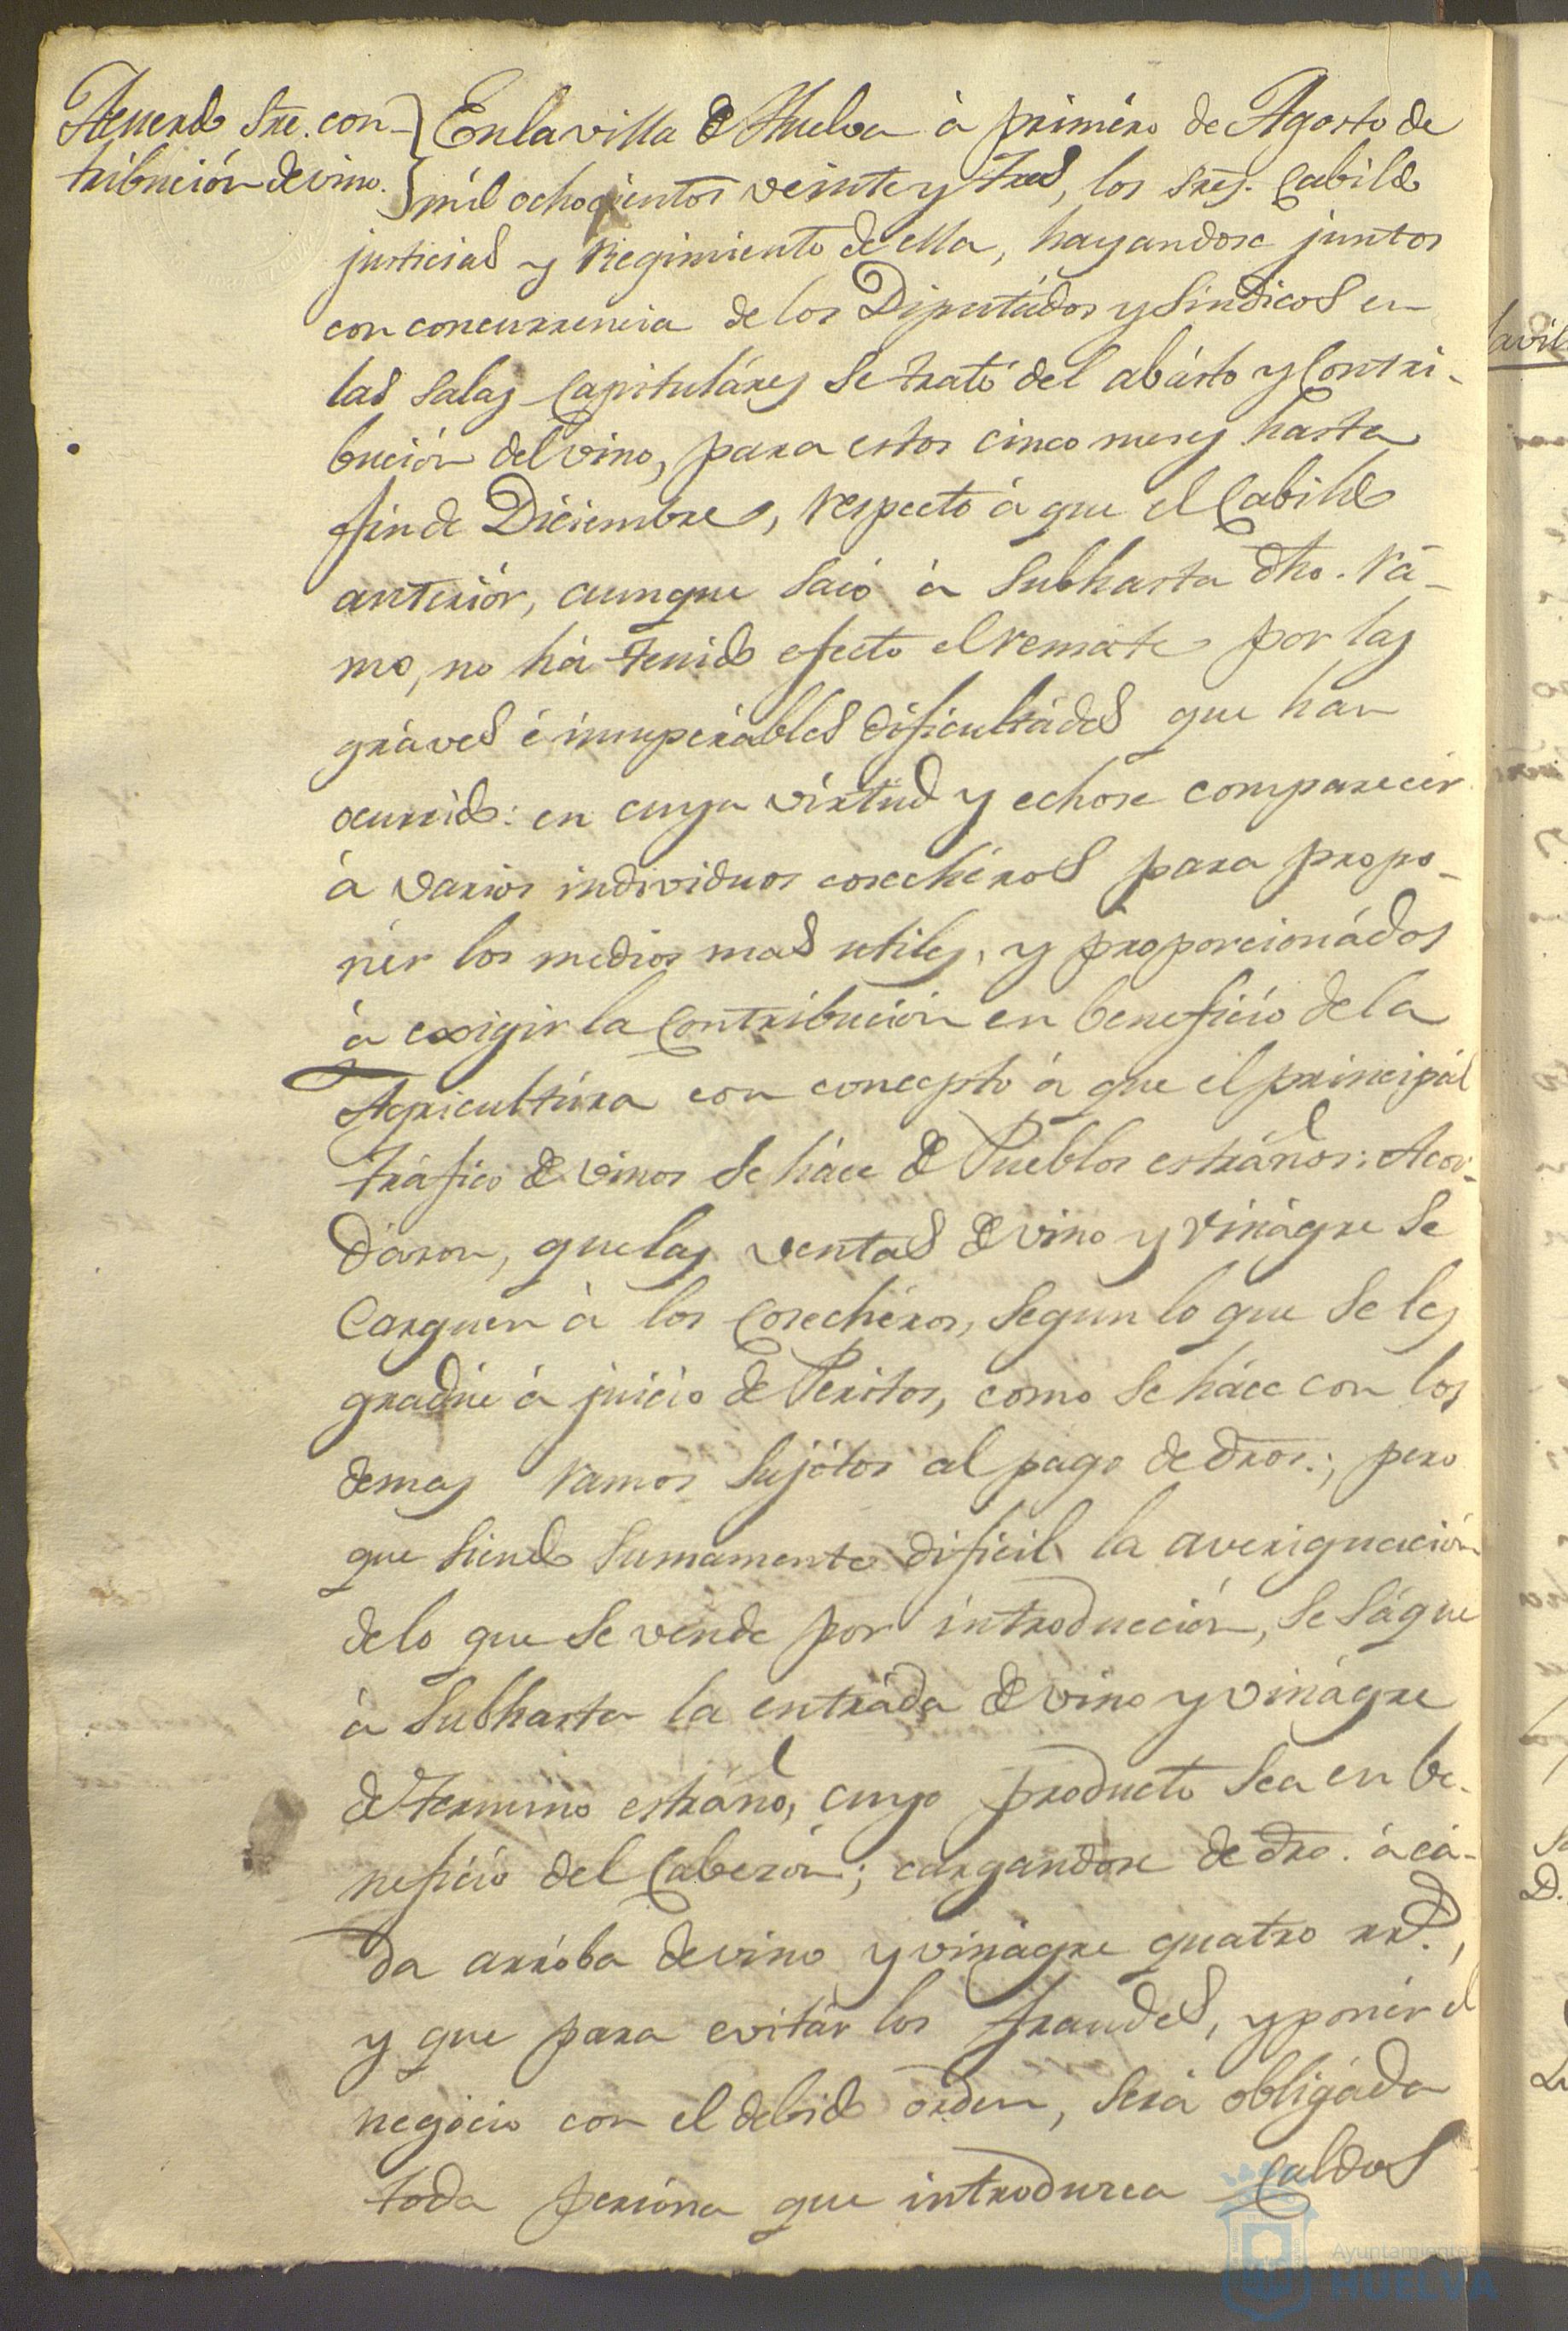 Acuerdo Sre. con-
tribución de vino.
En la villa de Huelva à priméro de Agosto de
mil ochocientos veinte y tres, los Sres. Cabildo
justicias y Regimiento de ella, hayandose juntos
con concurrencia de los Diputádos y Sindicos en
las Salas Capituláres se trató del abásto y Contri-
bución del vino, para estos cinco meses hasta
fin de Diciembre, respecto à que el Cabildo
anteriór, aunque sacó à Subhasta dho. rá-
mo, no há tenido efecto el remáte por las
gráves é insuperábles dificultádes que han
ocurrido: en cuya virtud y echose comparecér
à varios individuos cosechéros para propo-
nér los medios mas utiles, y proporcionádos
à exigir la Contribución en beneficio de la
Agricultúra con concepto à que el principál
tráfico de vinos se háce de Pueblos estráños: Acor-
dáron, que las ventas de vino y vinágre se
Carguen à los Cosechéros, segun lo que se les
gradúe à juicio de Peritos, como se háce con los
demas ramos sujétos al pago de dros.; pero
que siendo sumamente dificil la averiguación
de lo que se vende por introducción, se sáque
à Subhasta la entráda de vino y vinágre
de termino estráño, cuyo producto sea en be-
neficio del Cabezón; cargandose de dro. à cá-
da arróba de vino y vinágre quatro rrs.,
y que para evitár los fraudes, y ponér el
negócio con el debido orden, será obligáda
toda persóna que introduzca Caldos
Ayuntamiento de
HUELVA